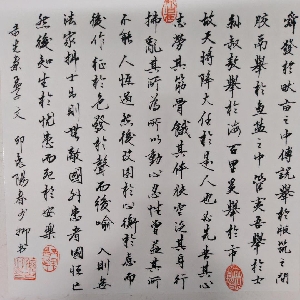 舜發於畎畝之中傅說舉於版築之間
膠鬲舉於魚鹽之中管夷吾舉於士
孫叔敖舉於海百里奚舉於市
故天將降大任於是人也必先苦其心
志勞其筋骨餓其體膚空乏其身行
拂亂其所為所以動心忍性曾益其所
不能人恆過然後改困於心衡於慮而
後作徵於色發於聲而後喻 入則無
法家拂士出則敵國外患者國恆亡
然後知生於憂患而死於安樂
文 卯 陽春 書